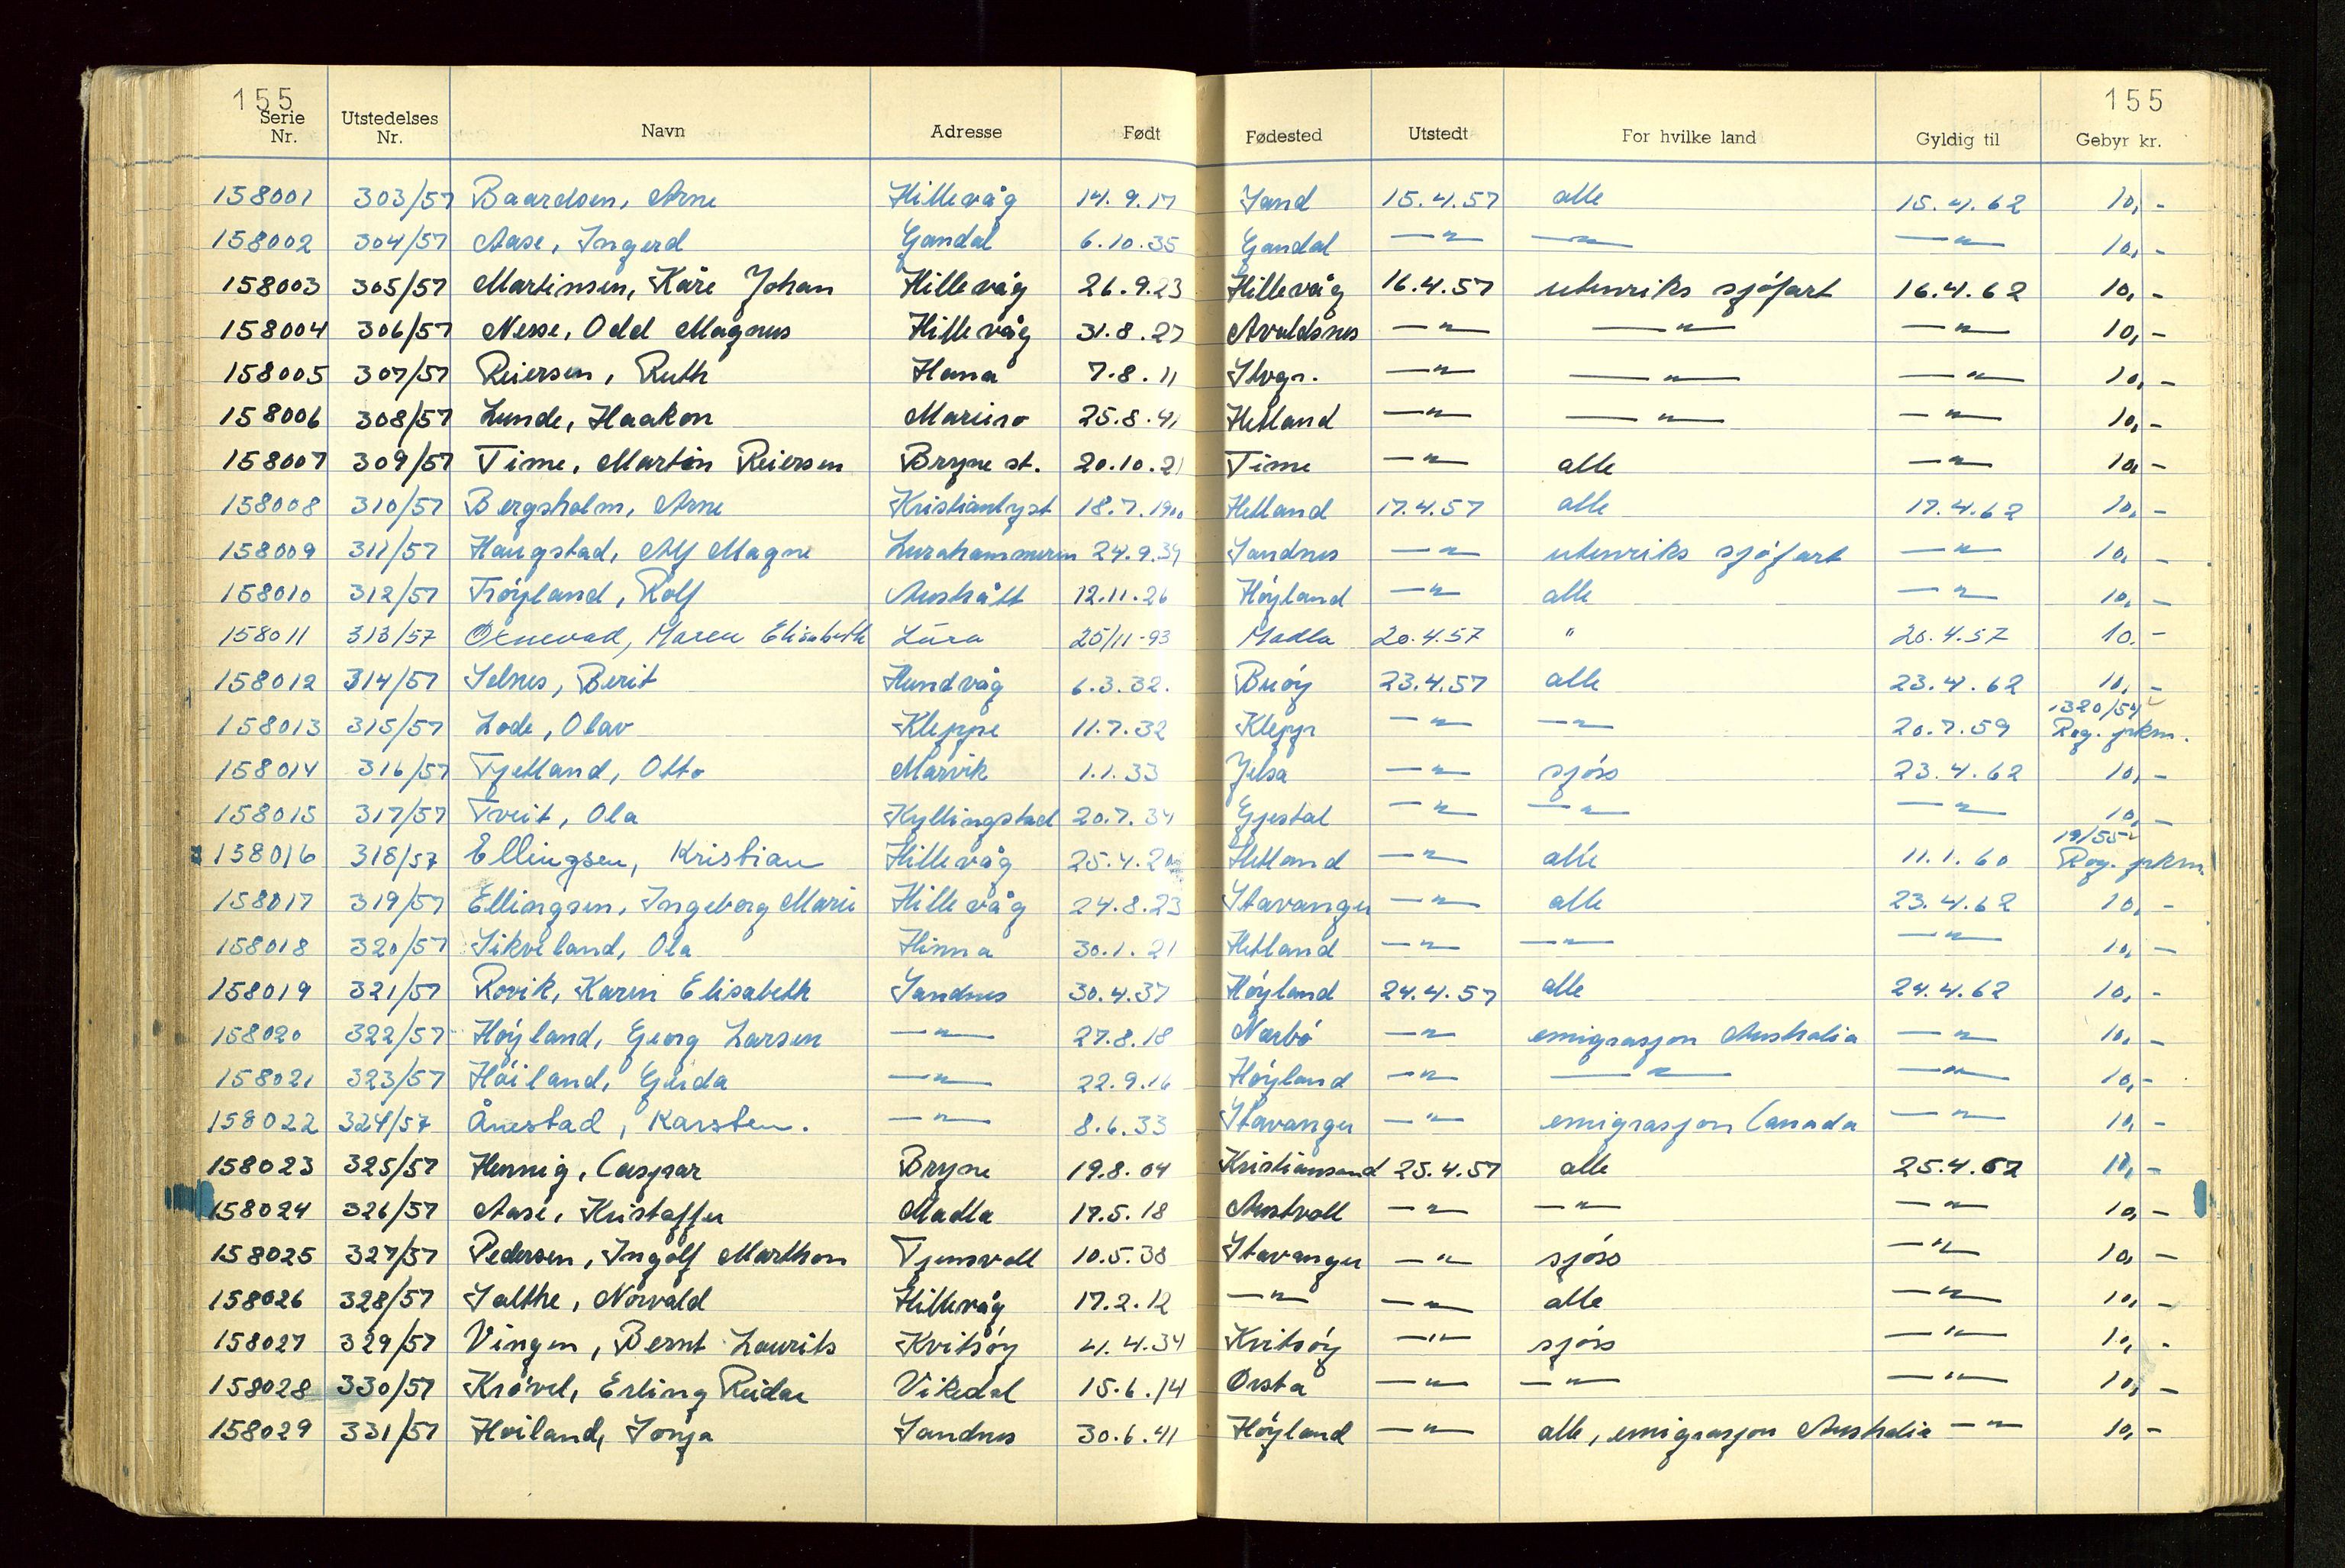 155 155
Serie Nr. Utstedelses Nr. Navn Adresse Født Fødested Utstedt For hvilke land Gyldig til Gebyr kr.
158001 303/57 Baardsen, Arne Hillevåg 14.9.17 Sand 15.4.57 alle 15.4.62 10,-
158002 304/57 Aase, Ingerd Gandal 6.10.35 Gandal —"— —"— —"— 10,-
158003 305/57 Martinsen, Kåre Johan Hillevåg 26.9.23 Hillevåg 16.4.57 utenriks sjøfart 16.4.62 10,-
158004 306/57 Nesse, Odd Magnus Hillevåg 31.8.27 Avaldsnes —"— —"— —"— 10,-
158005 307/57 Reiersen, Ruth Hana 7.8.11 Stvgr. —"— —"— —"— 10,-
158006 308/57 Lunde, Haakon Mariero 25.8.41 Hetland —"— —"— —"— 10,-
158007 309/57 Time, Martin Reiersen Bryne st. 20.10.21 Time —"— alle —"— 10,-
158008 310/57 Bergsholm, Arne Kristianlyst 18.7.1900 Hetland 17.4.57 alle 17.4.62 10,-
158009 311/57 Haugstad, Alf Magne Lurahammeren 24.9.39 Sandnes —"— utenriks sjøfart —"— 10,-
158010 312/57 Frøyland, Rolf Austrått 12.11.26 Høyland —"— alle —"— 10,-
158011 313/57 Oxnevad, Maren Elisabeth Lura 25/11-93 Madla 20.4.57 " 20.4.57 10.-
158012 314/57 Selnes, Berit Hundvåg 6.3.32. Buøy 23.4.57 alle 23.4.62 10,-
158013 315/57 Lode, Olav Kleppe 11.7.32 Klepp —"— —"— 20.7.59 1320/54 Rog. pkm.
158014 316/57 Tjetland, Otto Marvik 1.1.33 Jelsa —"— sjøss 23.4.62 10,-
158015 317/57 Tveit, Ola Kyllingstad 20.7.34 Gjestal —"— —"— —"— 10,-
158016 318/57 Ellingsen, Kristian Hillevåg 25.4.20 Hetland —"— alle 11.1.60 19/55 Rog. pkm.
158017 319/57 Ellingsen, Ingeborg Marie Hillevåg 24.8.23 Stavanger —"— alle 23.4.62 10,-
158018 320/57 Sikveland, Ola Hinna 30.1.21 Hetland —"— —"— —"— 10,-
158019 321/57 Rovik, Karin Elisabeth Sandnes 30.4.37 Høyland 24.4.57 alle 24.4.62 10,-
158020 322/57 Høyland, Georg Larsen —"— 27.8.18 Nærbø —"— emigrasjon Australia —"— 10,-
158021 323/57 Høiland, Gerda —"— 22.9.16 Høyland —"— —"— —"— 10,-
158022 324/57 Ånestad, Karsten. —"— 8.6.33 Stavanger —"— emigrasjon Canada —"— 10,-
158023 325/57 Hennig, Caspar Bryne 19.8.04 Kristiansand 25.4.57 alle 25.4.62 10,-
158024 326/57 Aase, Kristoffer Madla 17.5.18 Austvoll —"— —"— —"— 10,-
158025 327/57 Pedersen, Ingolf Marthon Tjensvoll 10.5.38 Stavanger —"— sjøss —"— 10,-
158026 328/57 Salthe, Norvald Hillevåg 17.2.12 —"— —"— alle —"— 10,-
158027 329/57 Vingen, Bernt Laurits Kvitsøy 4.4.34 Kvitsøy —"— sjøss —"— 10,-
158028 330/57 Krøvel, Erling Reidar Vikedal 15.6.14 Ørsta —"— —"— —"— 10,-
158029 331/57 Høiland, Sonja Sandnes 30.6.41 Høyland —"— alle, emigrasjon Australia —"— 10,-